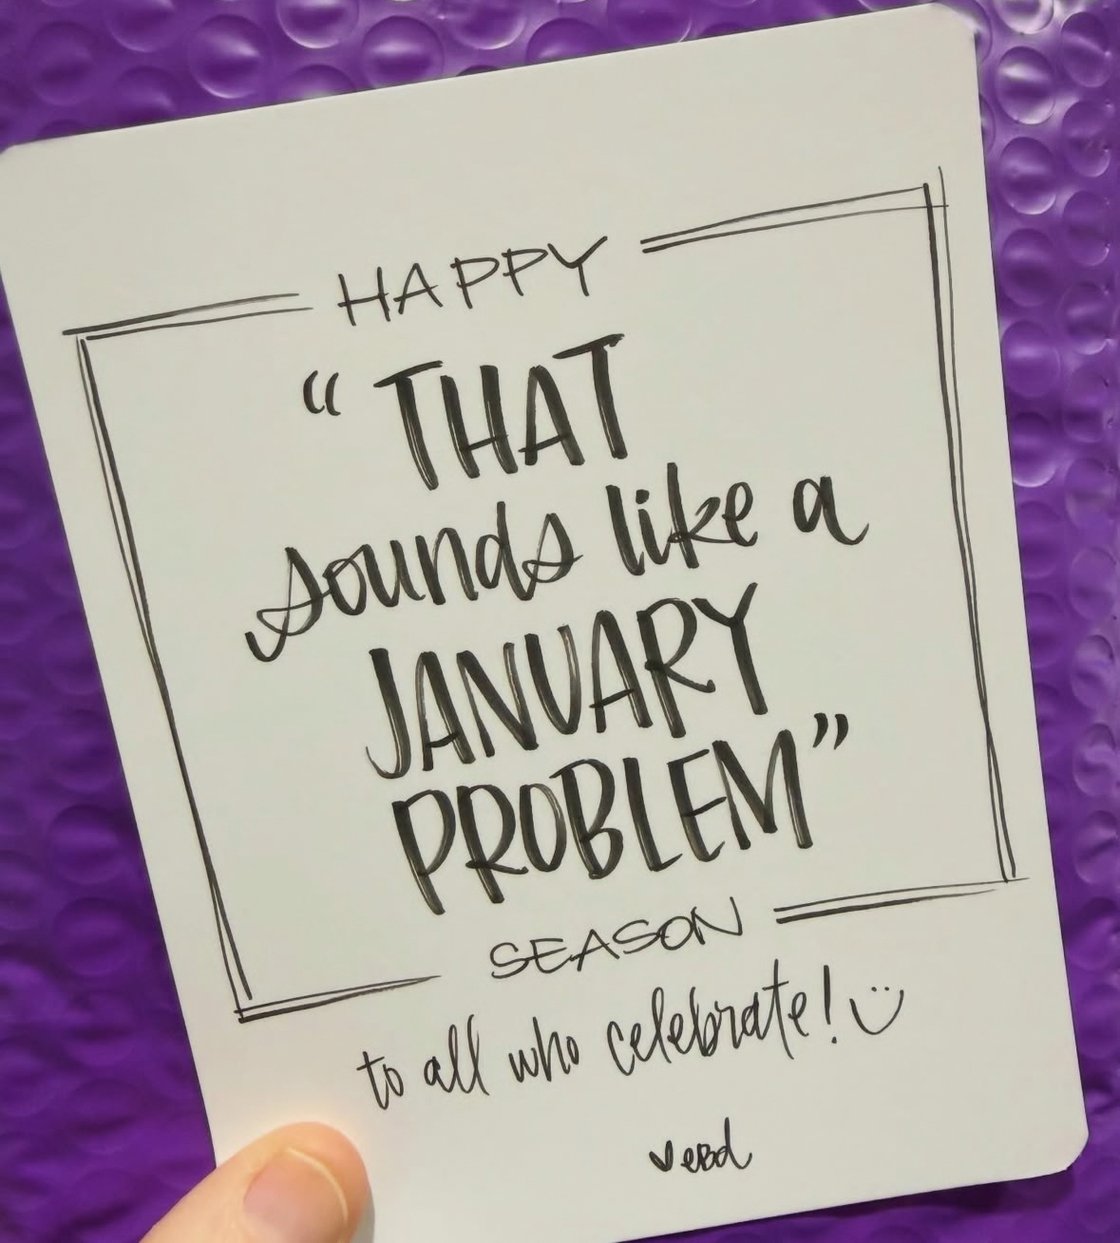 HAPPY
“THAT
sounds like a
JANUARY
PROBLEM”
SEASON
to all who celebrate! :)
♥ebd